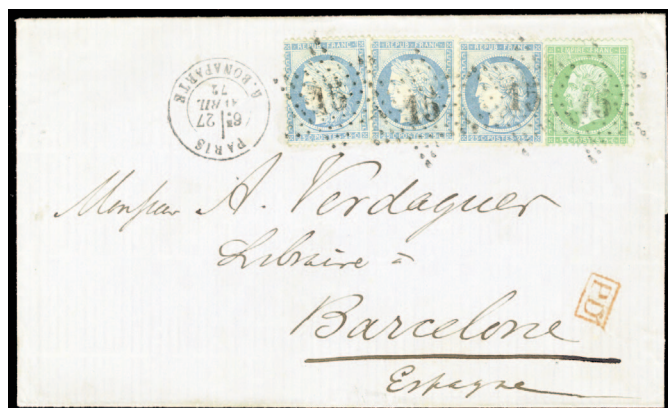 REPUB · FRANC REPUB · FRANC REPUB · FRANC EMPIRE FRANC
15 15 15 15
25 POSTES 25
PARIS
6E 27
AVRIL
72
R. BONAPARTE
Monsieur A. Verdaguer
Libraire à
Barcelone
Espagne
PD